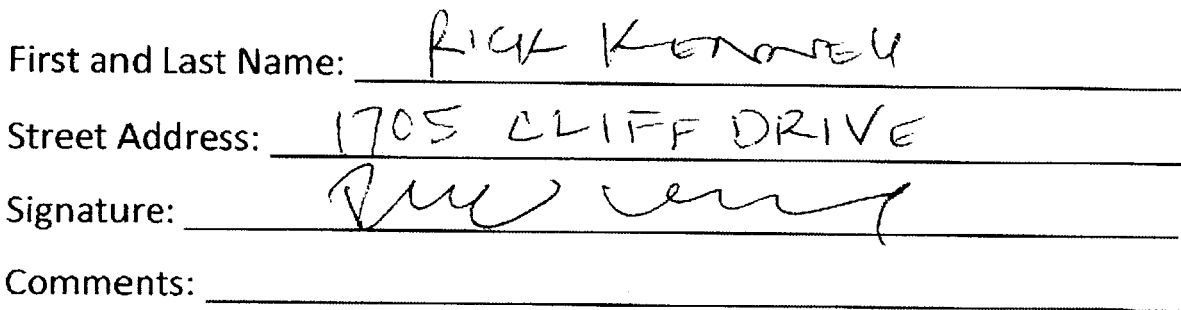 First and Last Name: RICK KENNEY
Street Address: 1705 CLIFF DRIVE
Signature:
Comments: